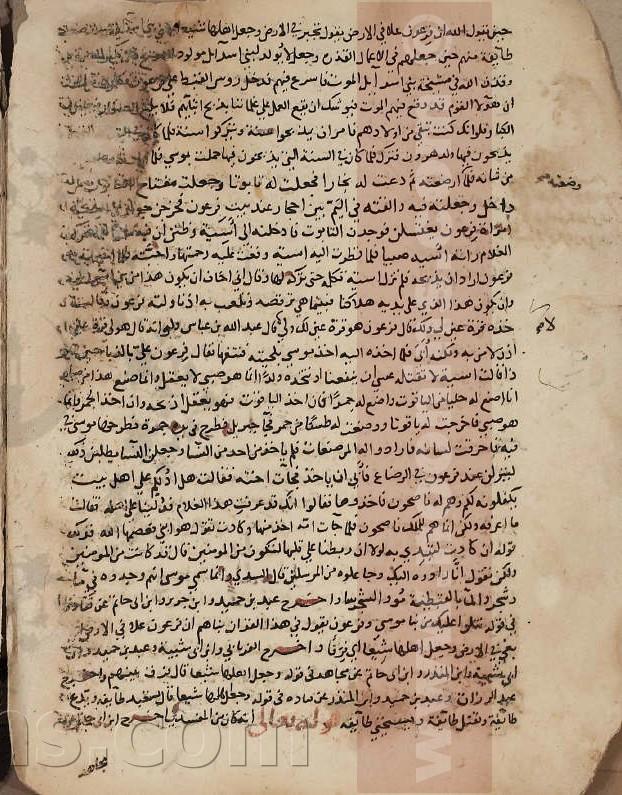 حين يقول الله ان فرعون علا في الارض يقول تجبر في الارض وجعل اهلها شيعا
طايفة منهم حين جعلهم في الاعمال القذرة وجعل لا يولد لبني اسرايل مولود
وقذف الله في مشيخة بني اسرايل الموت فاسرع فيهم فدخل روس القبط على فرعون
ان هولا القوم قد وقع فيهم الموت فيوشك ان يقع العمل على غلماننا بذبح ابنايهم فلا
الكبار فلو انك كنت تبقي من اولادهم فامر ان يذبحوا سنة ويتركوا سنة فلما كان
يذبحون فيها ولد هرون فترك فلما كان في السنة التي يذبحون فيها حملت بموسى فلما
وضعته
من شانه فلما ارضعته ثم دعت له نجارا فجعلت له تابوتا وجعلت مفتاح
داخل وجعلته فيه والقته في اليم بين احجار عند بيت فرعون فخرجن جواري
امراة فرعون يغتسلن فوجدن التابوت فادخلنه الى اسية وظنن ان فيه
الغلام راته اسية صبيا فلما نظرت اليه اسية وقعت عليه رحمتها واحبته فلما
فرعون اراد ان يذبحه فلم تزل اسية تكلمه حتى تركه لها وقال اني اخاف ان يكون هذا من بني
وان يكون هذا الذي على يديه هلاكنا فبينما هي ترقصه وتلعب به اذ ناولته فرعون
خذه قرة عين لي ولك قال فرعون هو قرة عين لك ولي قال عبد الله بن عباس ولو انه قال هو لي قرة عين
لا م
اذن لامن به ولكنه ابى فلما اخذه اليه اخذ موسى بلحيته فنتفها فقال فرعون علي بالذباحين
ذا قالت اسية لا تقتله عسى ان ينفعنا او نتخذه ولدا انما هو صبي لا يعقل وانما صنع هذا من
انا اضع له حليا من الياقوت واضع له جمرا فان اخذ الياقوت فهو يعقل اذبحه وان اخذ الجمر فانما
هو صبي فاخرجت له ياقوتا ووضعت له طستا من جمر فجا جبريل فطرح في يده جمرة فطرحها موسى في
فيه فاحرقت لسانه فارادوا له المرضعات فلم ياخذ من احد من النسا وجعلن النسا يطلبن ذلك
لينزلن عند فرعون في الرضاع فابى ان ياخذ فجات اخته فقالت هل ادلكم على اهل بيت
يكفلونه لكم وهم له ناصحون فاخذوها فقالوا انك قد عرفت هذا الغلام فدلينا على اهله فقالت
ما اعرفه ولكن انما هم للملك ناصحون فلما جات امه اخذ منها وكادت تقول هو ابني فعصمها الله فذلك
قوله ان كادت لتبدي به لولا ان ربطنا على قلبها لتكون من المومنين قال قد كانت من المومنين
ولكن بقول انا رادوه اليك وجاعلوه من المرسلين قال السدي وانما سمي موسى لانهم وجدوه في ما
وشجر والما بالقبطية مو والشجر سا واخرج عبد بن حميد وابن جرير وابن ابي حاتم عن قتادة
في قوله نتلوا عليك من نبا موسى وفرعون يقول في هذا القران نباهم ان فرعون علا في الارض
بغى في الارض وجعل اهلها شيعا اي فرقا واخرج الفريابي وابن ابي شيبة وعبد بن حميد
وابن المنذر وابن ابي حاتم عن مجاهد في قوله وجعل اهلها شيعا قال فرق بينهم واخرج
عبد الرزاق وعبد بن حميد وابن المنذر عن قتادة في قوله وجعل اهلها شيعا قال يستعبد طايفة ويدع
طايفة ويقتل طايفة ويستحيي طايفة قوله تعالى انه كان من المفسدين اخرج ابن ابي